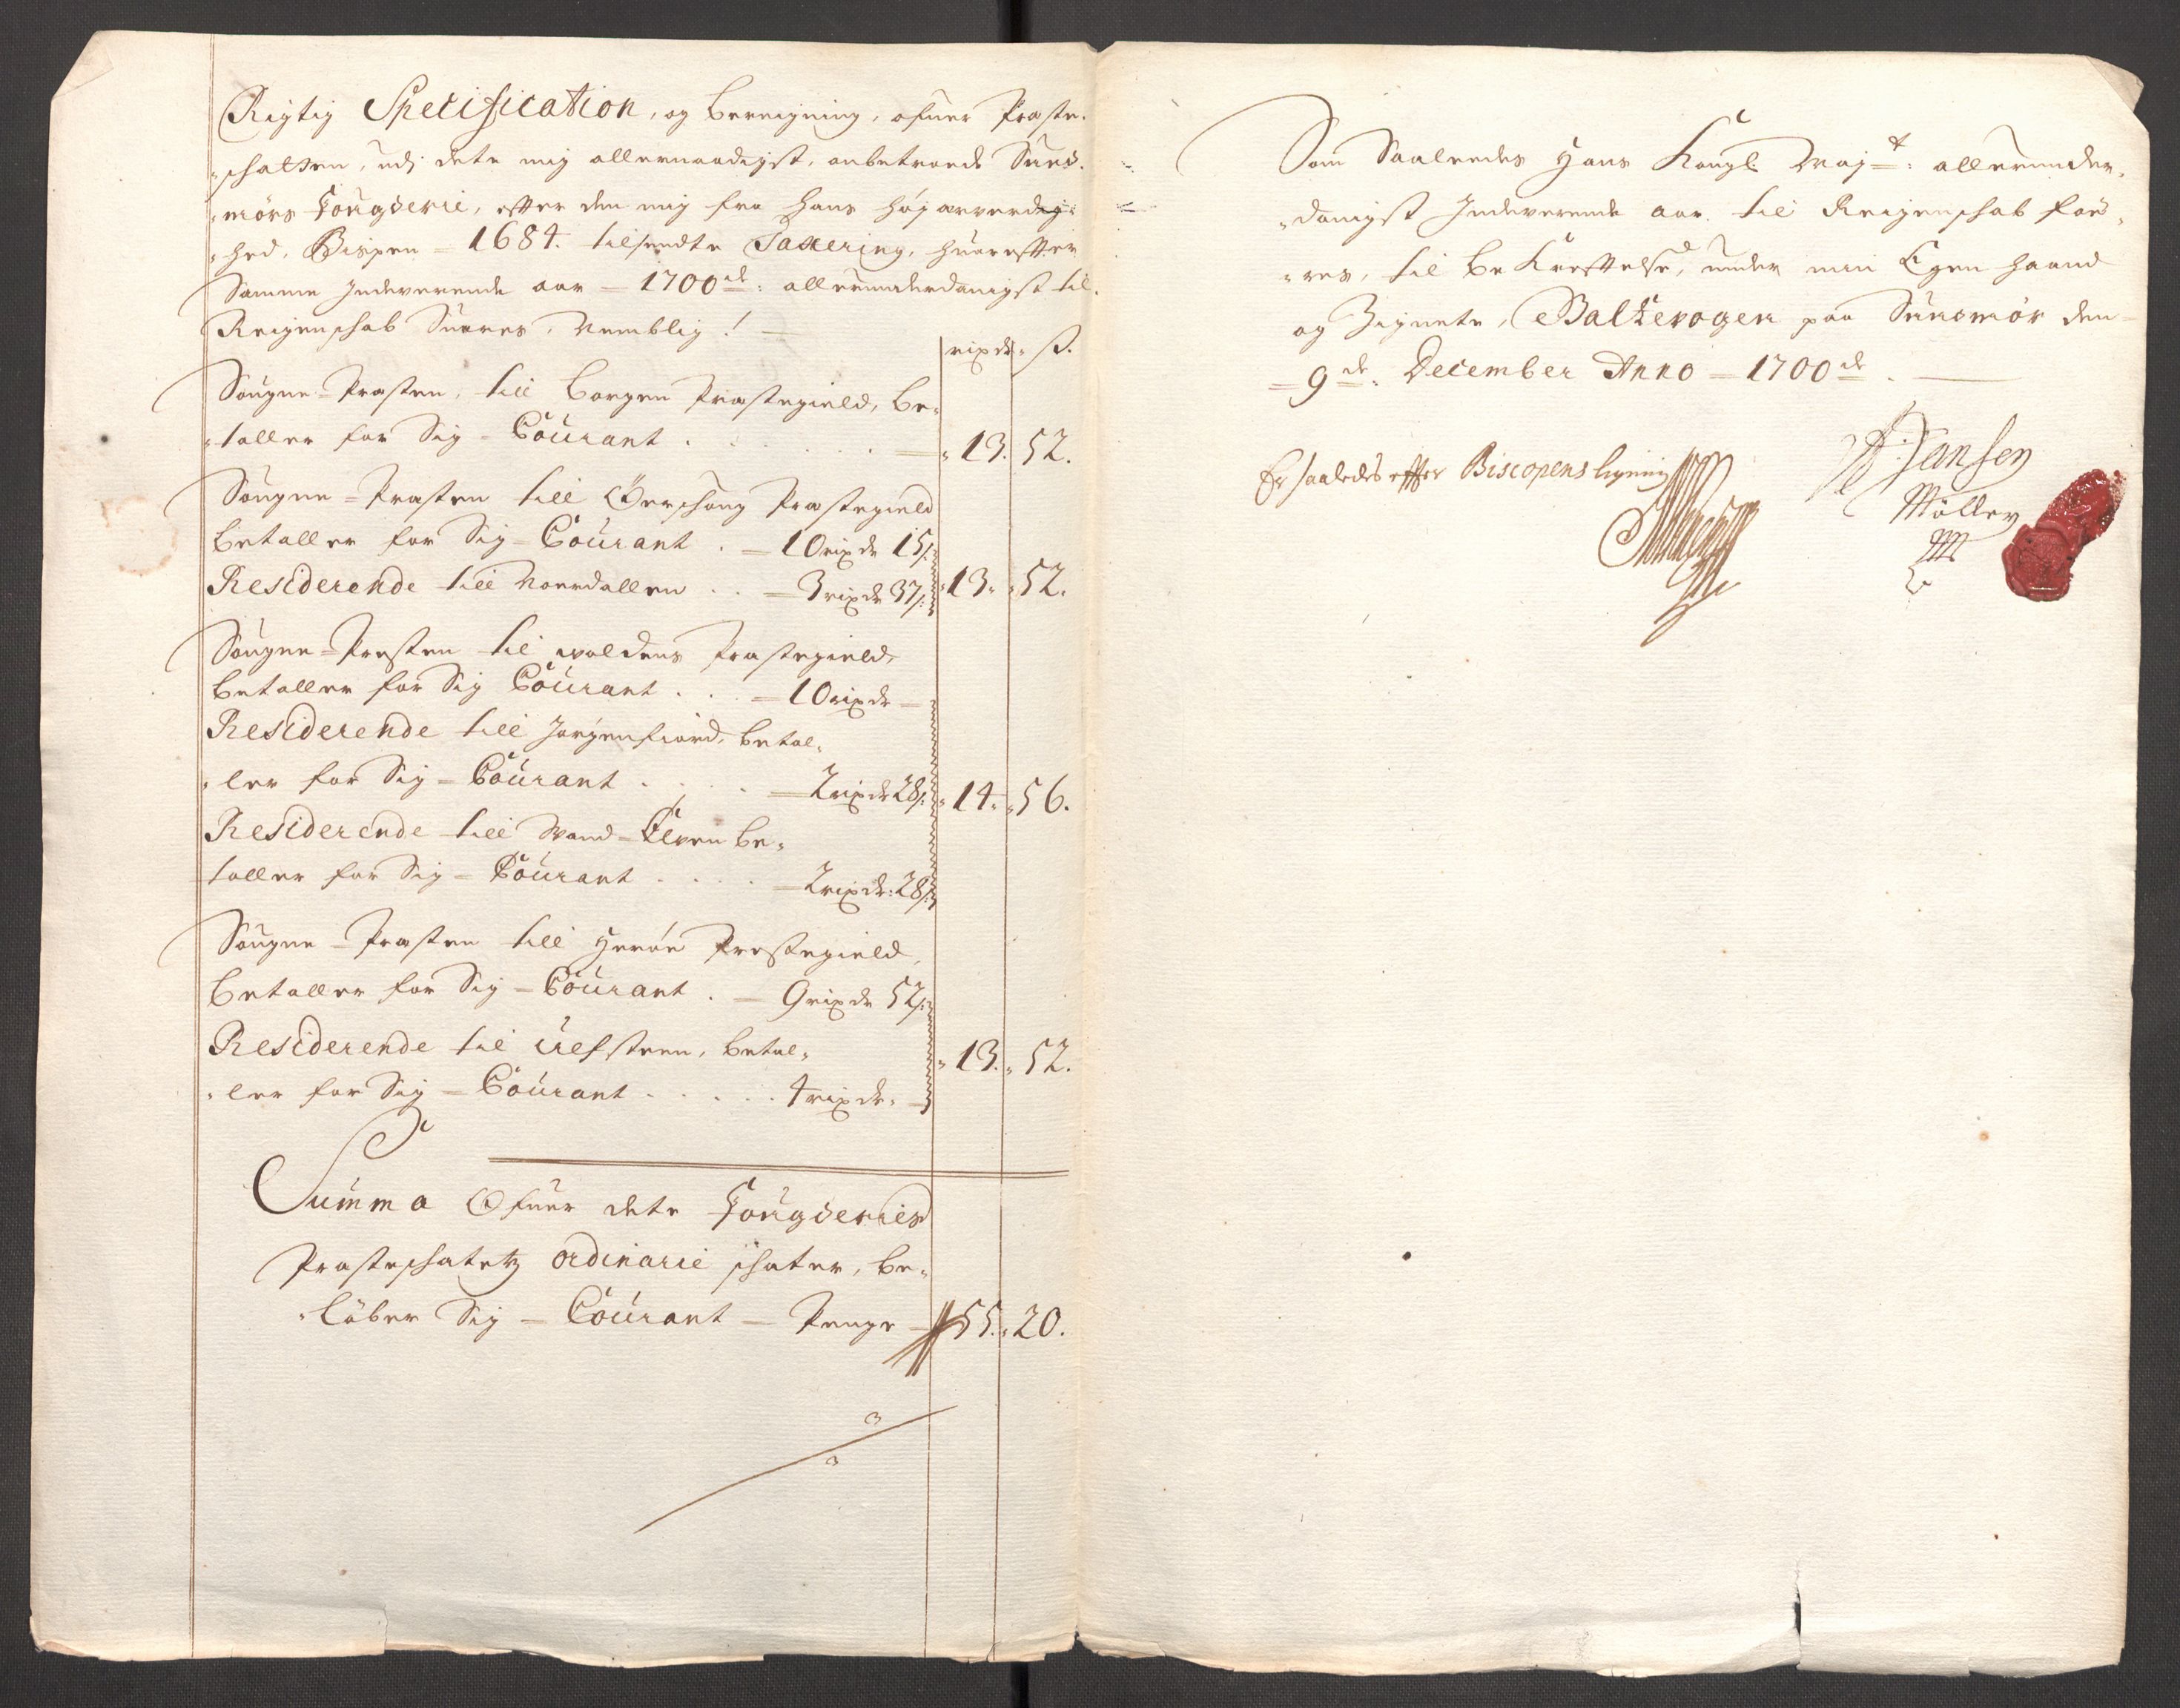 Rigtig Specification, og bereigning, ofuer Præste-
schatten, udj dete mig allernaadigst, anbetroede Sund-
mörs Fougderie, efter den mig fra hans höj ærverdig-
hed, Bispen = 1684. tilsendte Taxering, huorefter
Samme Indeverende aar – 1700de: allerunderdanigst til
Reigenschab Sueres, Nemblig!
rixdr ß.
Sougne-Præsten, till Borgen Præstegield, Be-
taller for Sig = Courant . . . . 13. 52.
Sougne-Præsten till Örschoug Præstegield
betaller for Sig = Courant . – 10 rixdr 15ß
Residerende till Noerdallen . . – 3 rixdr 37ß 13. 52.
Sougne-Præsten til woldens Præstegield,
betaller for Sig Courant . . – 10 rixdr –
Residerende till Jörgenfiord, betal-
ler for Sig = Courant . . . – 2 rixdr 28ß 14. 56.
Residerende till Wand-Elven be-
taller for Sig = Courant . . . . – 2 rixdr: 28ß
Sougne-Præsten till Heröe Præstegield,
betaller for Sig = Courant . – 9 rixdr 52ß
Residerende til Ulfsteen, betal- 13. 52.
ler for Sig = Courant . . . . . 4 rixdr. –
Summa Ofuer dete Fougderies
Præsteschatets ordinarie schater, be-
löber Sig – Courant – Penge – 55. 20.
Som Saaledes Hans Kongl. Maj=t: allerunder-
danigst Indeverende aar til Reigenschab föe-
res, til Bekreftelse, under min Egen Haand
og Zignete, Baltzevogen paa Sundmör den
9de: December Anno – 1700de.
Er saaledes effter Biscopens ligning
Jansen
Möller
M